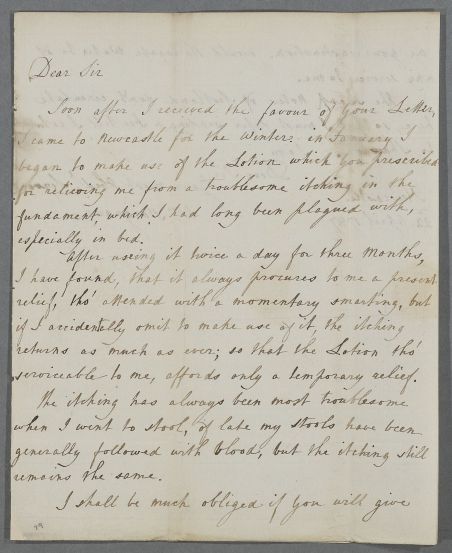 Dear Sir
Soon after I received the favour of your Letter,
I came to Newcastle for the Winter: in January I
began to make use of the Lotion which you prescribed
for relieving me from a troublesome itching in the
fundament, which I had long been plagued with,
especially in bed.
After useing it twice a day for three Months,
I have found, that it always procures to me a present
relief, tho' attended with a momentary smarting, but
if I accidentally omit to make use of it, the itching
returns as much as ever; so that the Lotion tho'
serviceable to me, affords only a temporary relief.
The itching has always been most troublesome
when I went to stool, of late my stools have been
generally followed with blood, but the itching still
remains the same.
I shall be much obliged if you will give